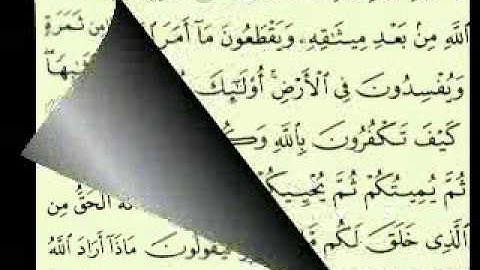 ٱللَّهِ مِنۢ بَعْدِ مِيثَٰقِهِۦ وَيَقْطَعُونَ مَآ أَمَرَ مِن ثَمَرَةٍ
وَيُفْسِدُونَ فِي ٱلْأَرْضِ ۚ أُو۟لَٰٓئِكَ
كَيْفَ تَكْفُرُونَ بِٱللَّهِ
ثُمَّ يُمِيتُكُمْ ثُمَّ يُحْيِيكُمْ ٱلْحَقُّ مِن
ٱلَّذِى خَلَقَ لَكُم فَيَقُولُونَ مَاذَآ أَرَادَ ٱللَّهُ